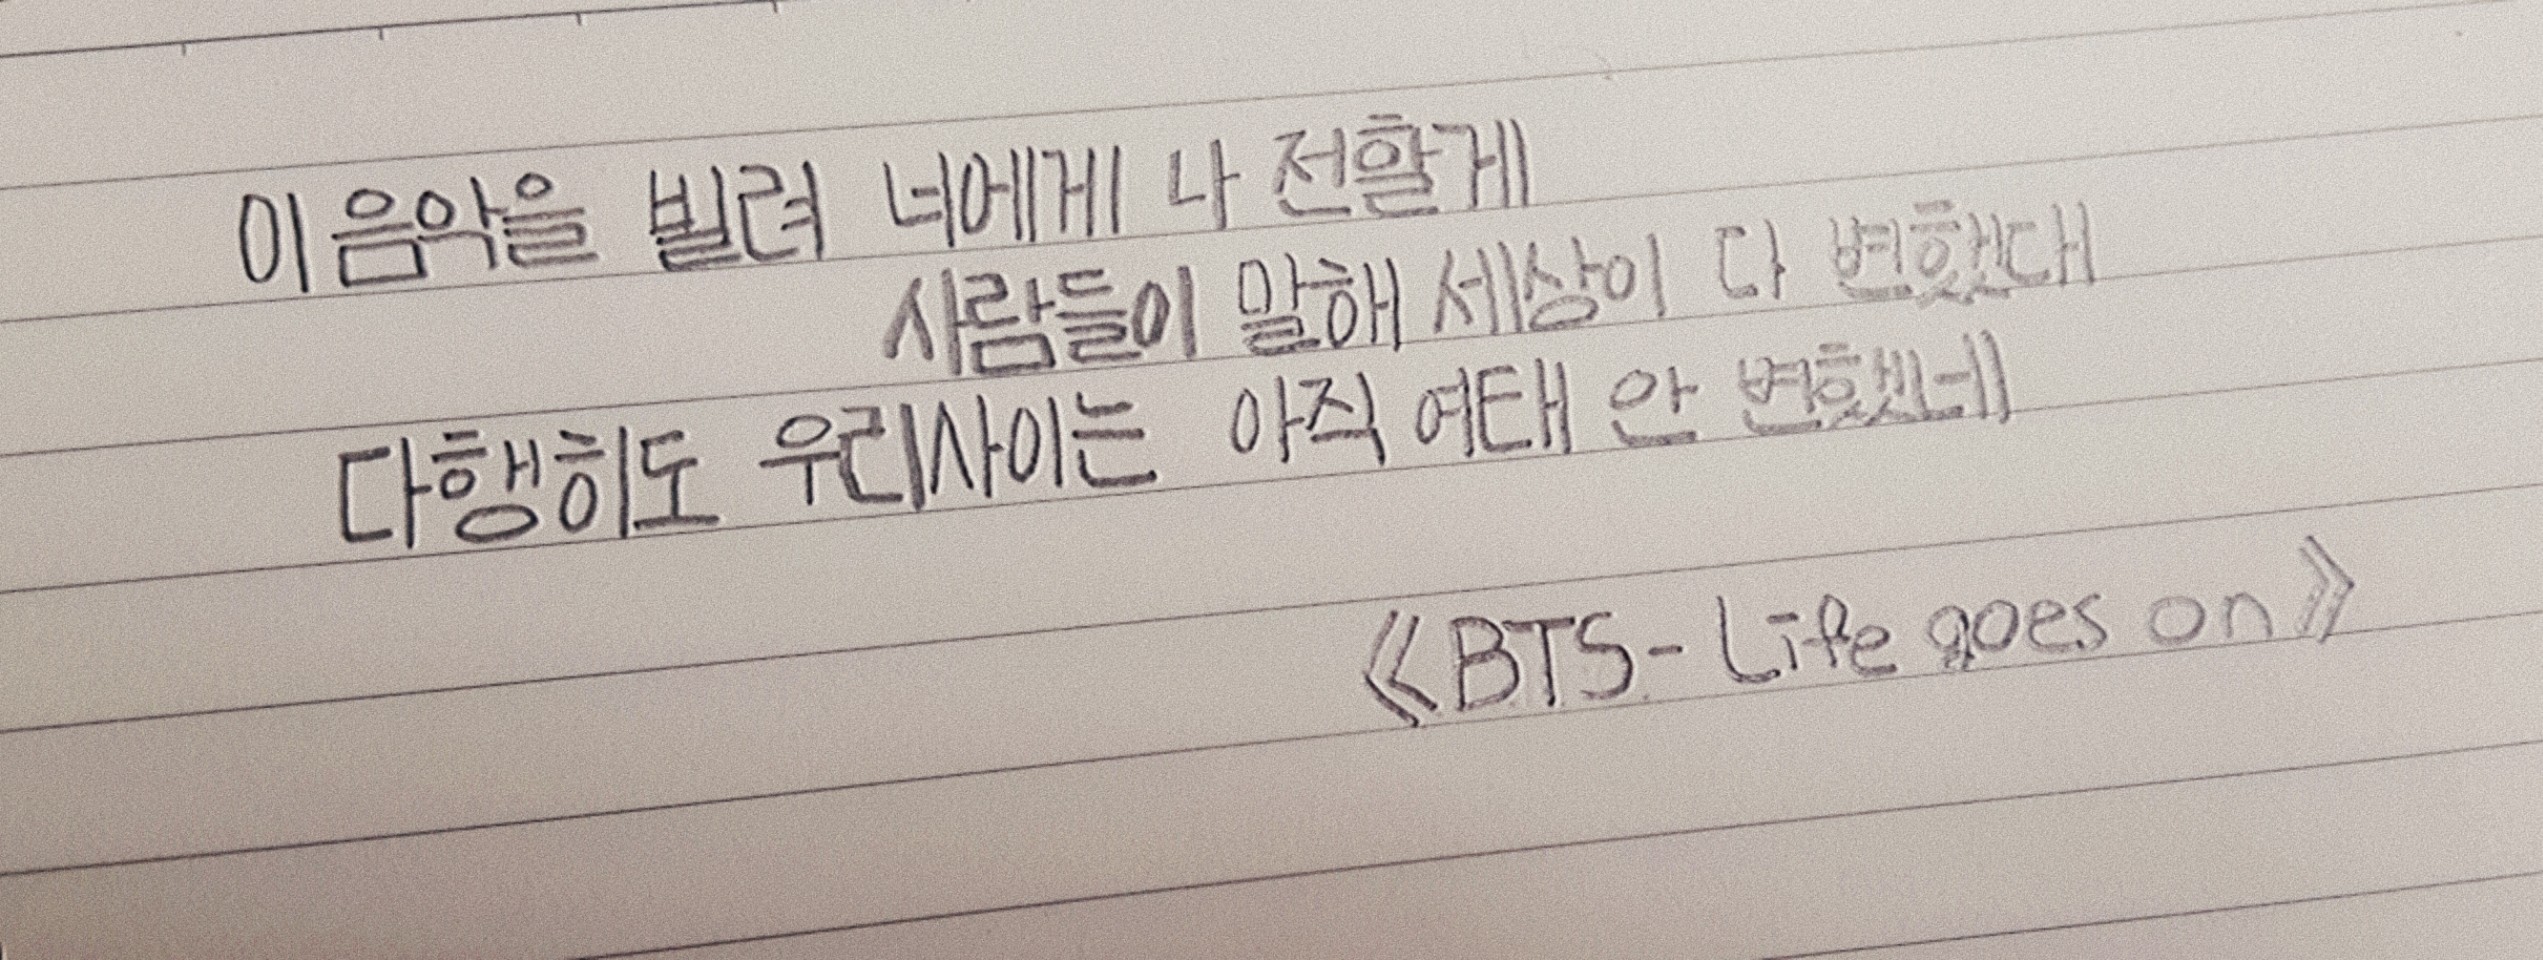 이 음악을 빌려 너에게 나 전할게
사람들이 말해 세상이 다 변했대
다행히도 우리사이는 아직 여태 안 변했네
《BTS- Life goes on》